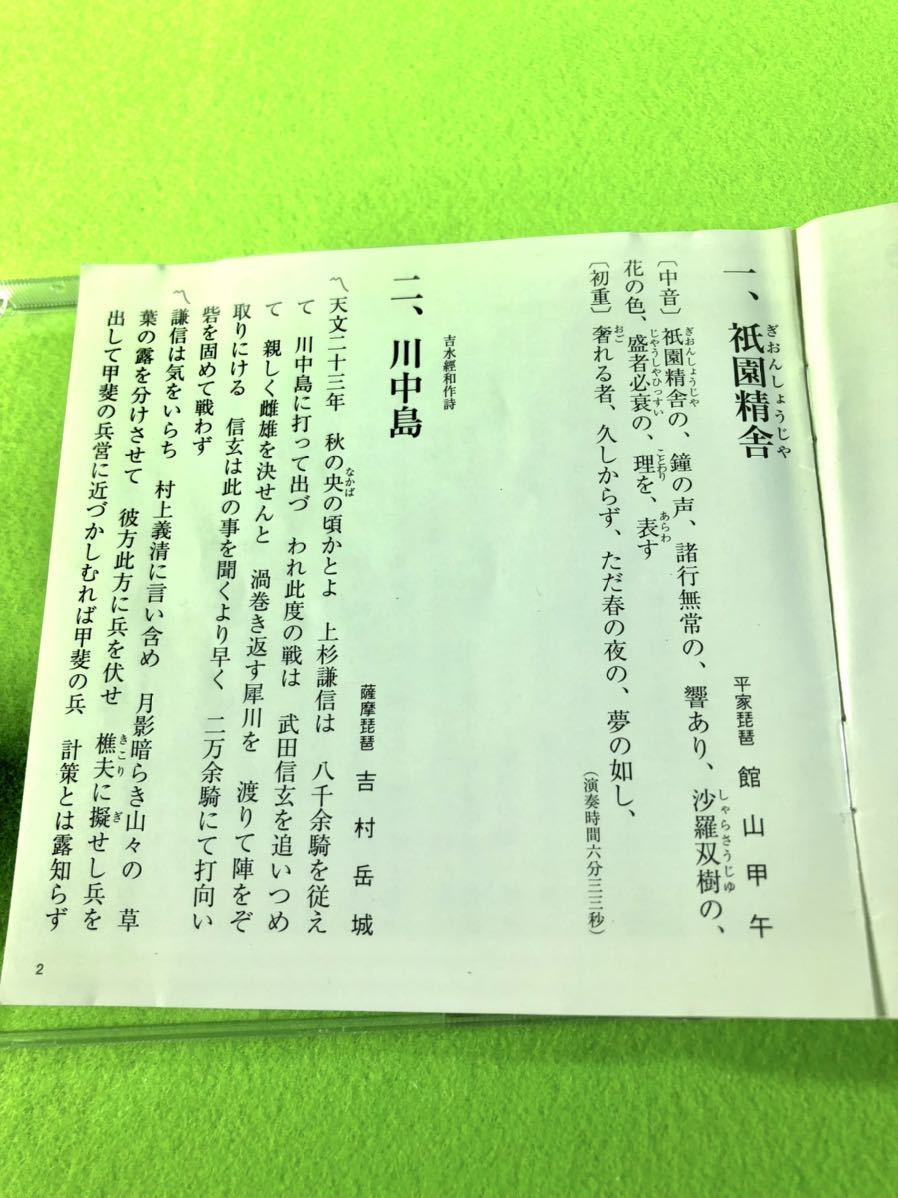 一、祇園精舎
ぎおんしょうじゃ
平家琵琶 館山甲午
〔中音〕祇園精舎の、鐘の声、諸行無常の、響あり、沙羅双樹の、
ぎおんしょうじゃ
しゃらさうじゆ
花の色、盛者必衰の、理を、表す
じやうしやひつすい
ことわり
あらわ
〔初重〕奢れる者、久しからず、ただ春の夜の、夢の如し、
おご
(演奏時間六分三三秒)
吉水經和作詩
二、川中島
薩摩琵琶 吉村岳城
〽天文二十三年 秋の央の頃かとよ 上杉謙信は 八千余騎を従え
なかば
て 川中島に打って出づ われ此度の戦は 武田信玄を追いつめ
て 親しく雌雄を決せんと 渦巻き返す犀川を 渡りて陣をぞ
取りにける 信玄は此の事を聞くより早く 二万余騎にて打向い
砦を固めて戦わず
〽謙信は気をいらち 村上義清に言い含め 月影暗らき山々の 草
葉の露を分けさせて 彼方此方に兵を伏せ 樵夫に擬せし兵を
きこり
ぎ
出して甲斐の兵営に近づかしむれば甲斐の兵 計策とは露知らず
2